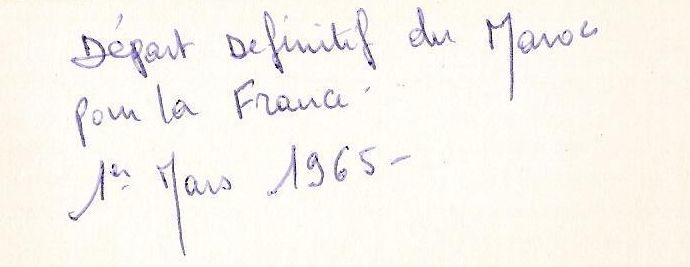 Départ Definitif du Maroc
pour la France.
1er Mars 1965-